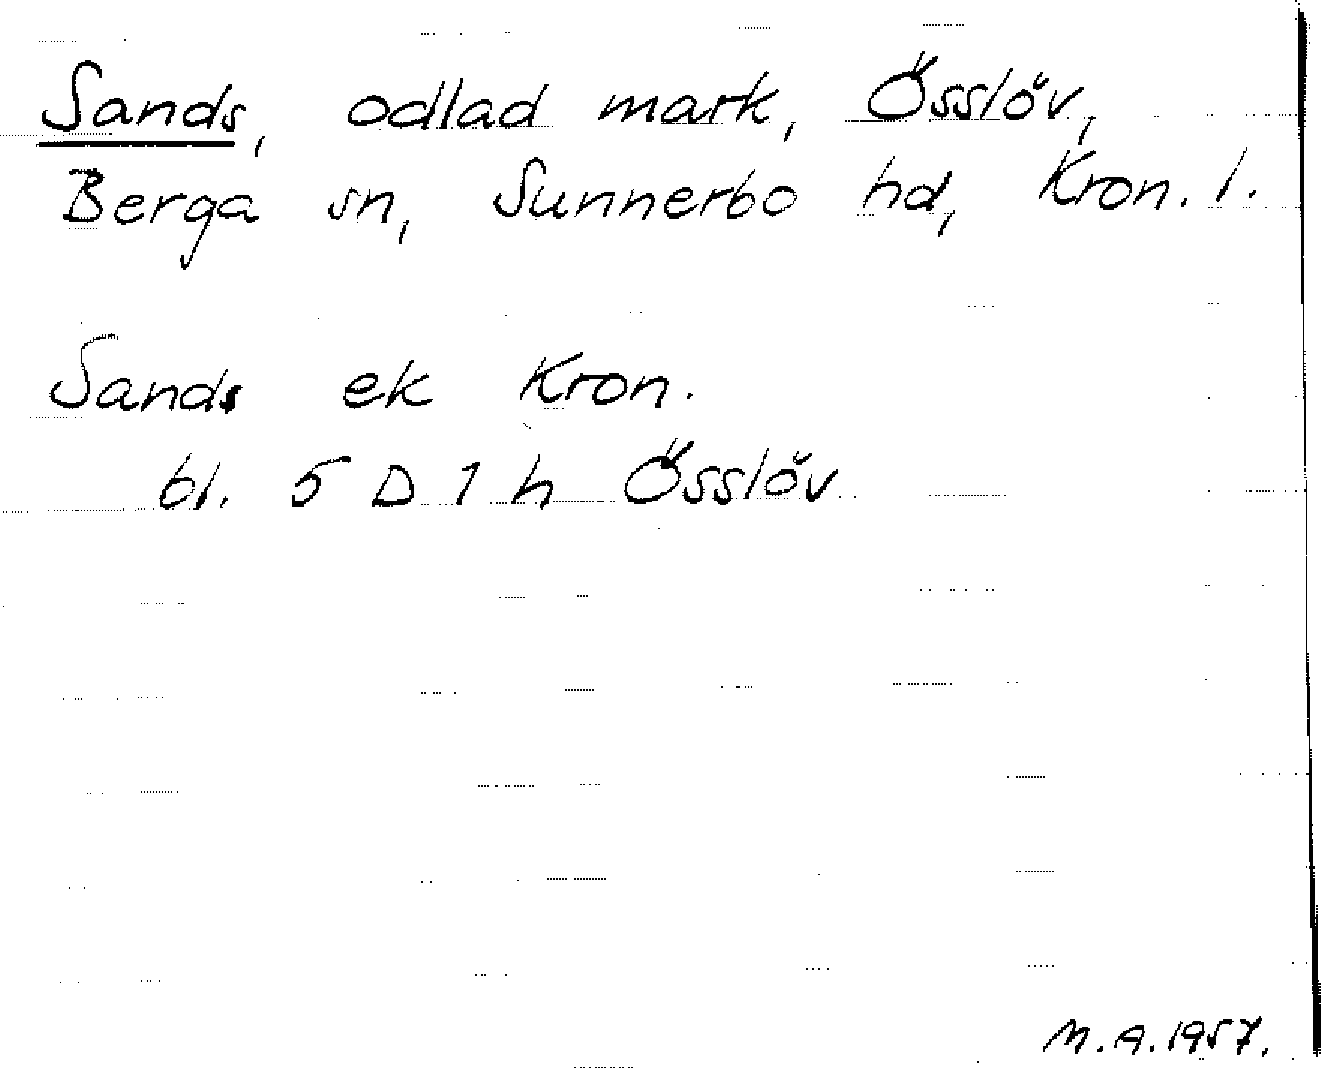 Sands, odlad mark, Össlöv,
Berga sn, Sunnerbo hd, Kron. l.
Sands ek Kron.
bl. 5 D 1 h Össlöv
M.A. 1957.